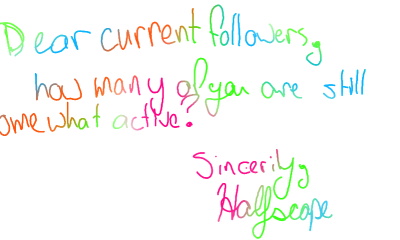 Dear current followers,
how many of you are still
omewhat active?
Sincerily,
Halfscope